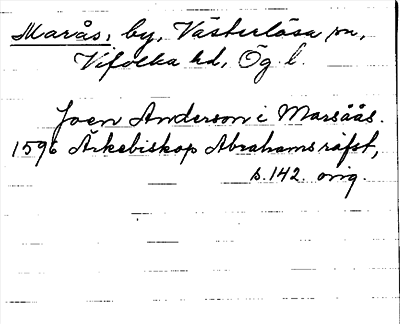 Marås, by, Västerlösa sn,
Vifolka hd, Ög. l.
Joen Anderson i Marsåås.
1596 Ärkebiskop Abrahams räfst,
s. 142. orig.